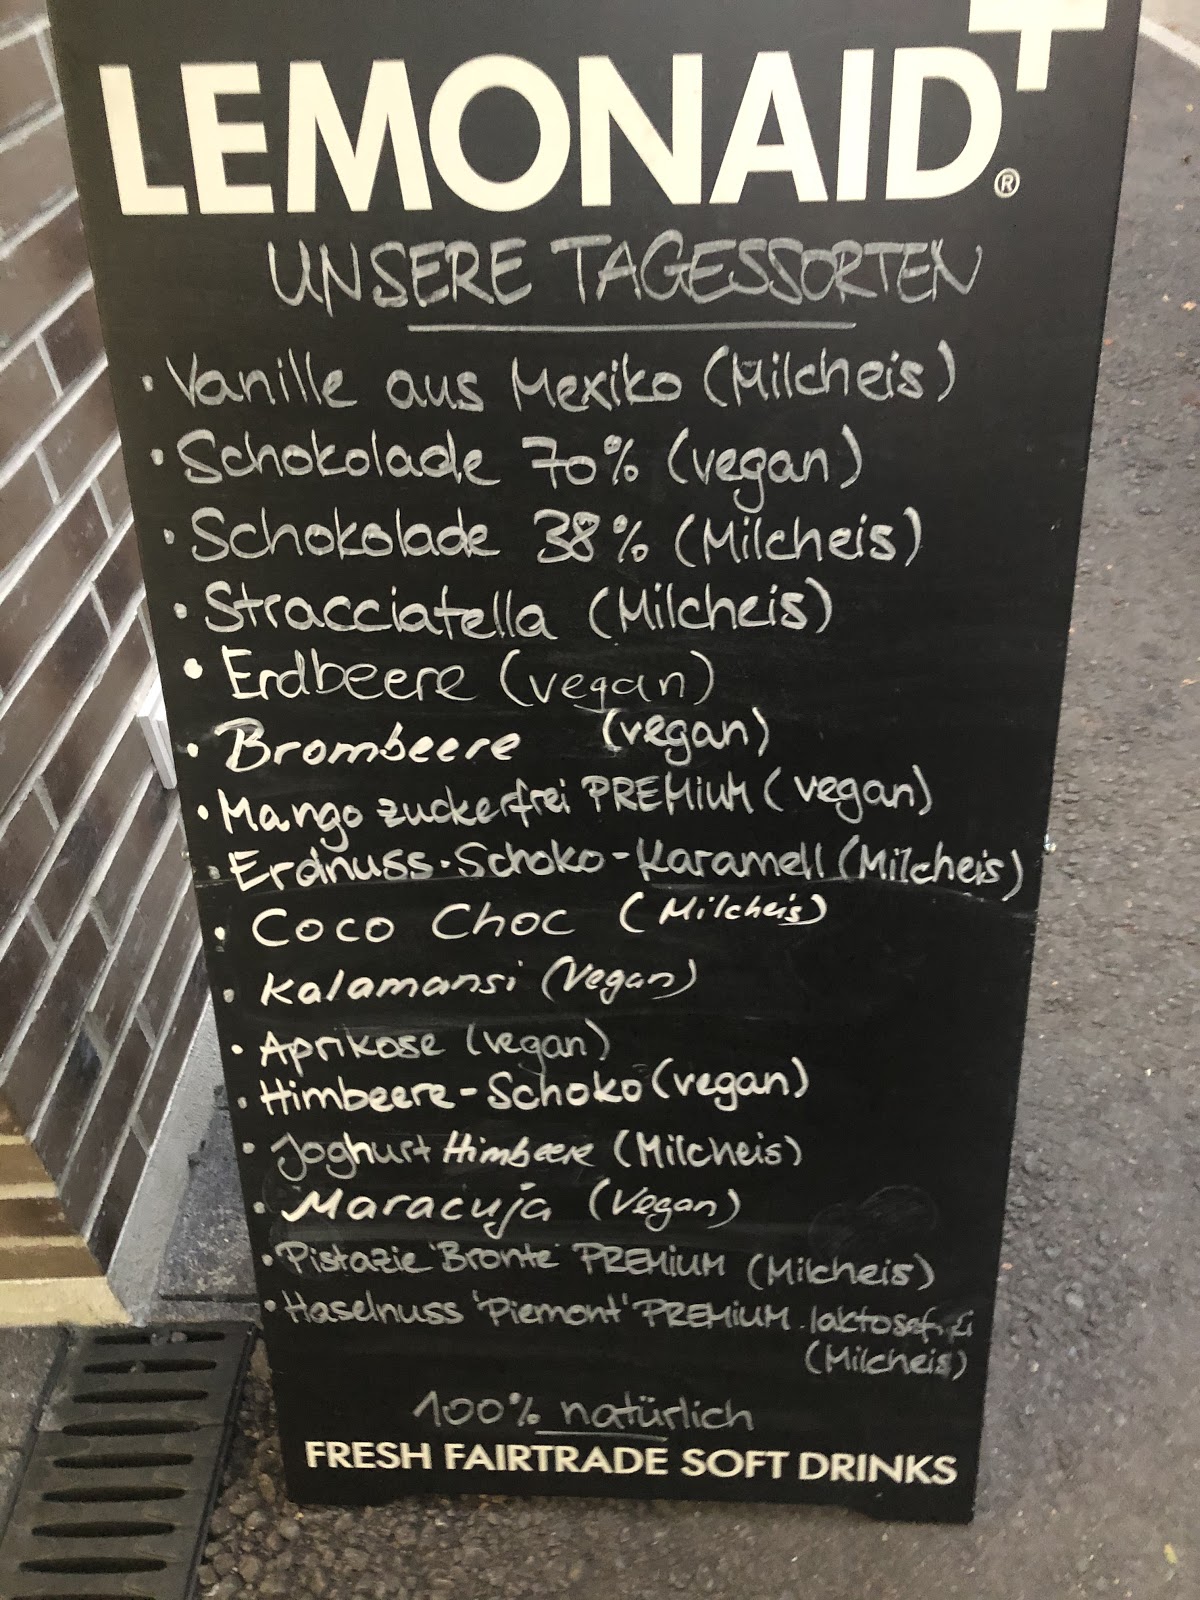 LEMONAID+®
UNSERE TAGESSORTEN
• Vanille aus Mexiko (Milcheis)
• Schokolade 70% (vegan)
• Schokolade 38% (Milcheis)
• Stracciatella (Milcheis)
• Erdbeere (vegan)
• Brombeere (vegan)
• Mango zuckerfrei PREMIUM (vegan)
• Erdnuss-Schoko-Karamell (Milcheis)
• Coco Choc (Milcheis)
• Kalamansi (Vegan)
• Aprikose (vegan)
• Himbeere-Schoko (vegan)
• Joghurt Himbeere (Milcheis)
• Maracuja (Vegan)
• Pistazie 'Bronte' PREMIUM (Milcheis)
• Haselnuss 'Piemont' PREMIUM laktosefrei
(Milcheis)
100% natürlich
FRESH FAIRTRADE SOFT DRINKS